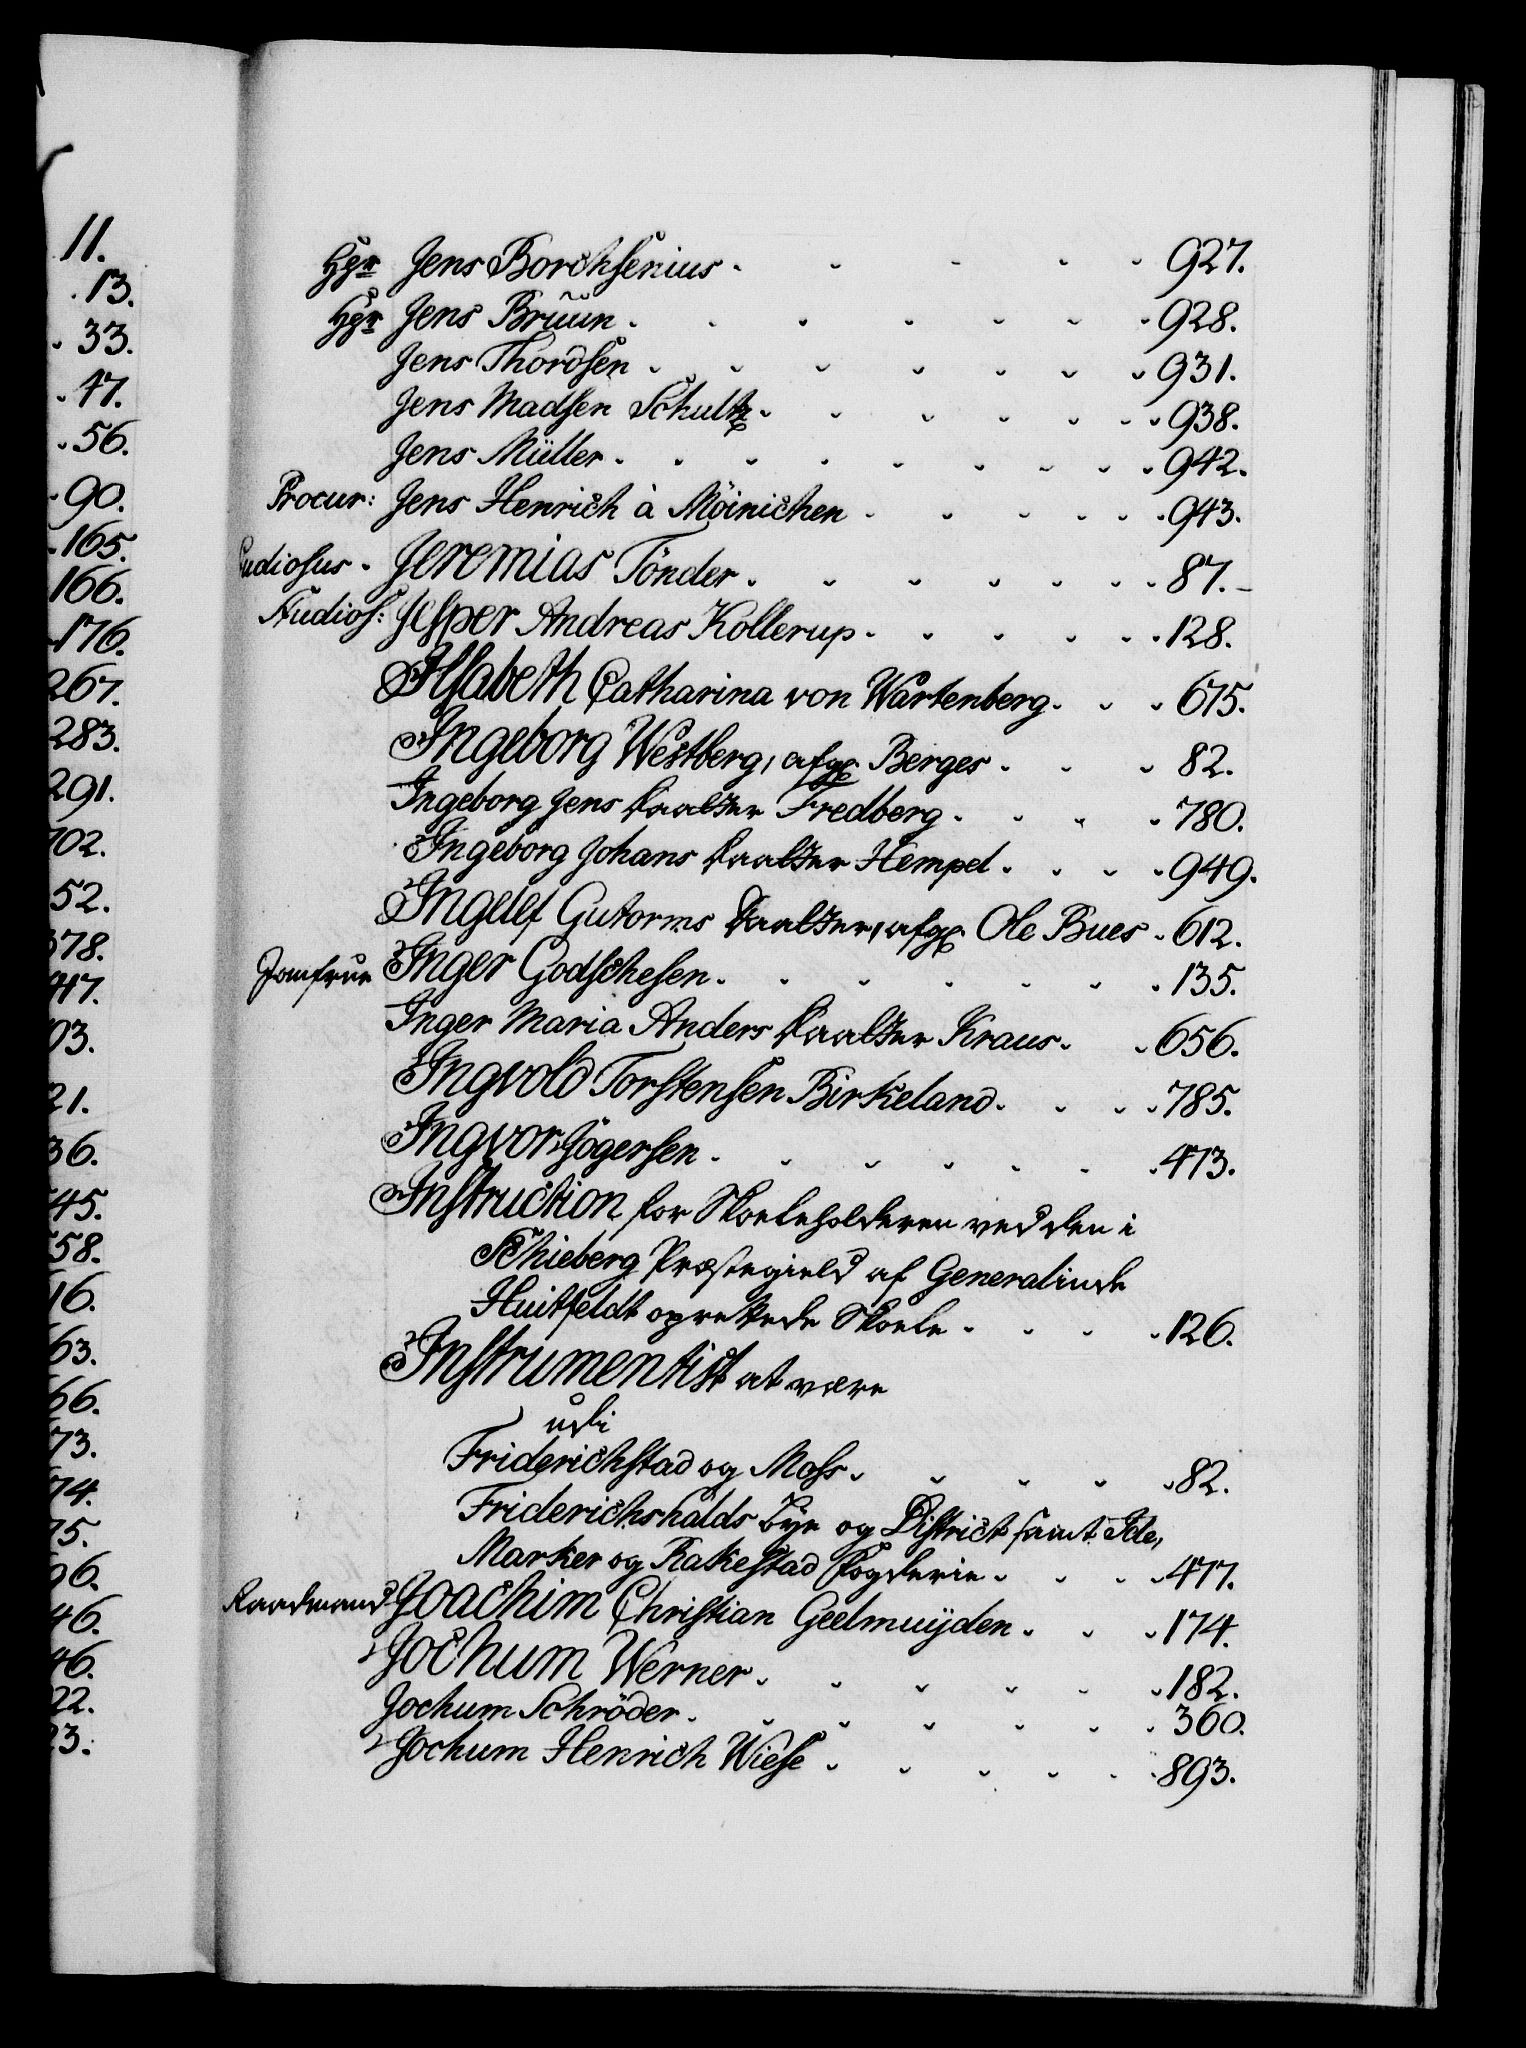 11.
13.
33.
47.
56.
90.
165.
166.
176.
267.
283.
291.
702.
52.
378.
47.
03.
21.
36.
45.
58.
16.
63.
66.
73.
74.
75.
96.
46.
46.
22.
23.
Hgr Jens Borchsenius 927.
Hgr Jens Bruun 928.
Jens Thordsen 931.
Jens Madsen Schultz 938.
Jens Müller 942.
Procur: Jens Henrich à Möinichen 943.
tudiosus Jeremias Tönder 87.
Studios: Jesper Andreas Kollerup 128.
Ilsabeth Catharina von Wartenberg 675.
Ingeborg Westberg, afg: Berges 82.
Ingeborg Jens Daatter Fredberg 780.
Ingeborg Johans Daatter Hempel 949.
Ingelef Gutorms Daatter, afg: Ole Bues 612.
Jomfrue Inger Godschesen 135.
Inger Maria Anders Daatter Kraus 656.
Ingvold Torstensen Birkeland 785.
Ingvor Jögersen 473.
Instruction for Skoeleholderen ved den i
Schieberg Præstegield af Generalinde
Huitfeldt oprettede Skoele 126.
Instrumentist at være
udi
Friderichstad og Moss 82.
Friderichshalds Bye og District samt Ide,
Marker og Rakestad Fogderie 477.
Raadmand Joachim Christian Geelmuyden 174.
Jochum Werner 182.
Jochum Schröder 360.
Jochum Henrich Wiese 893.